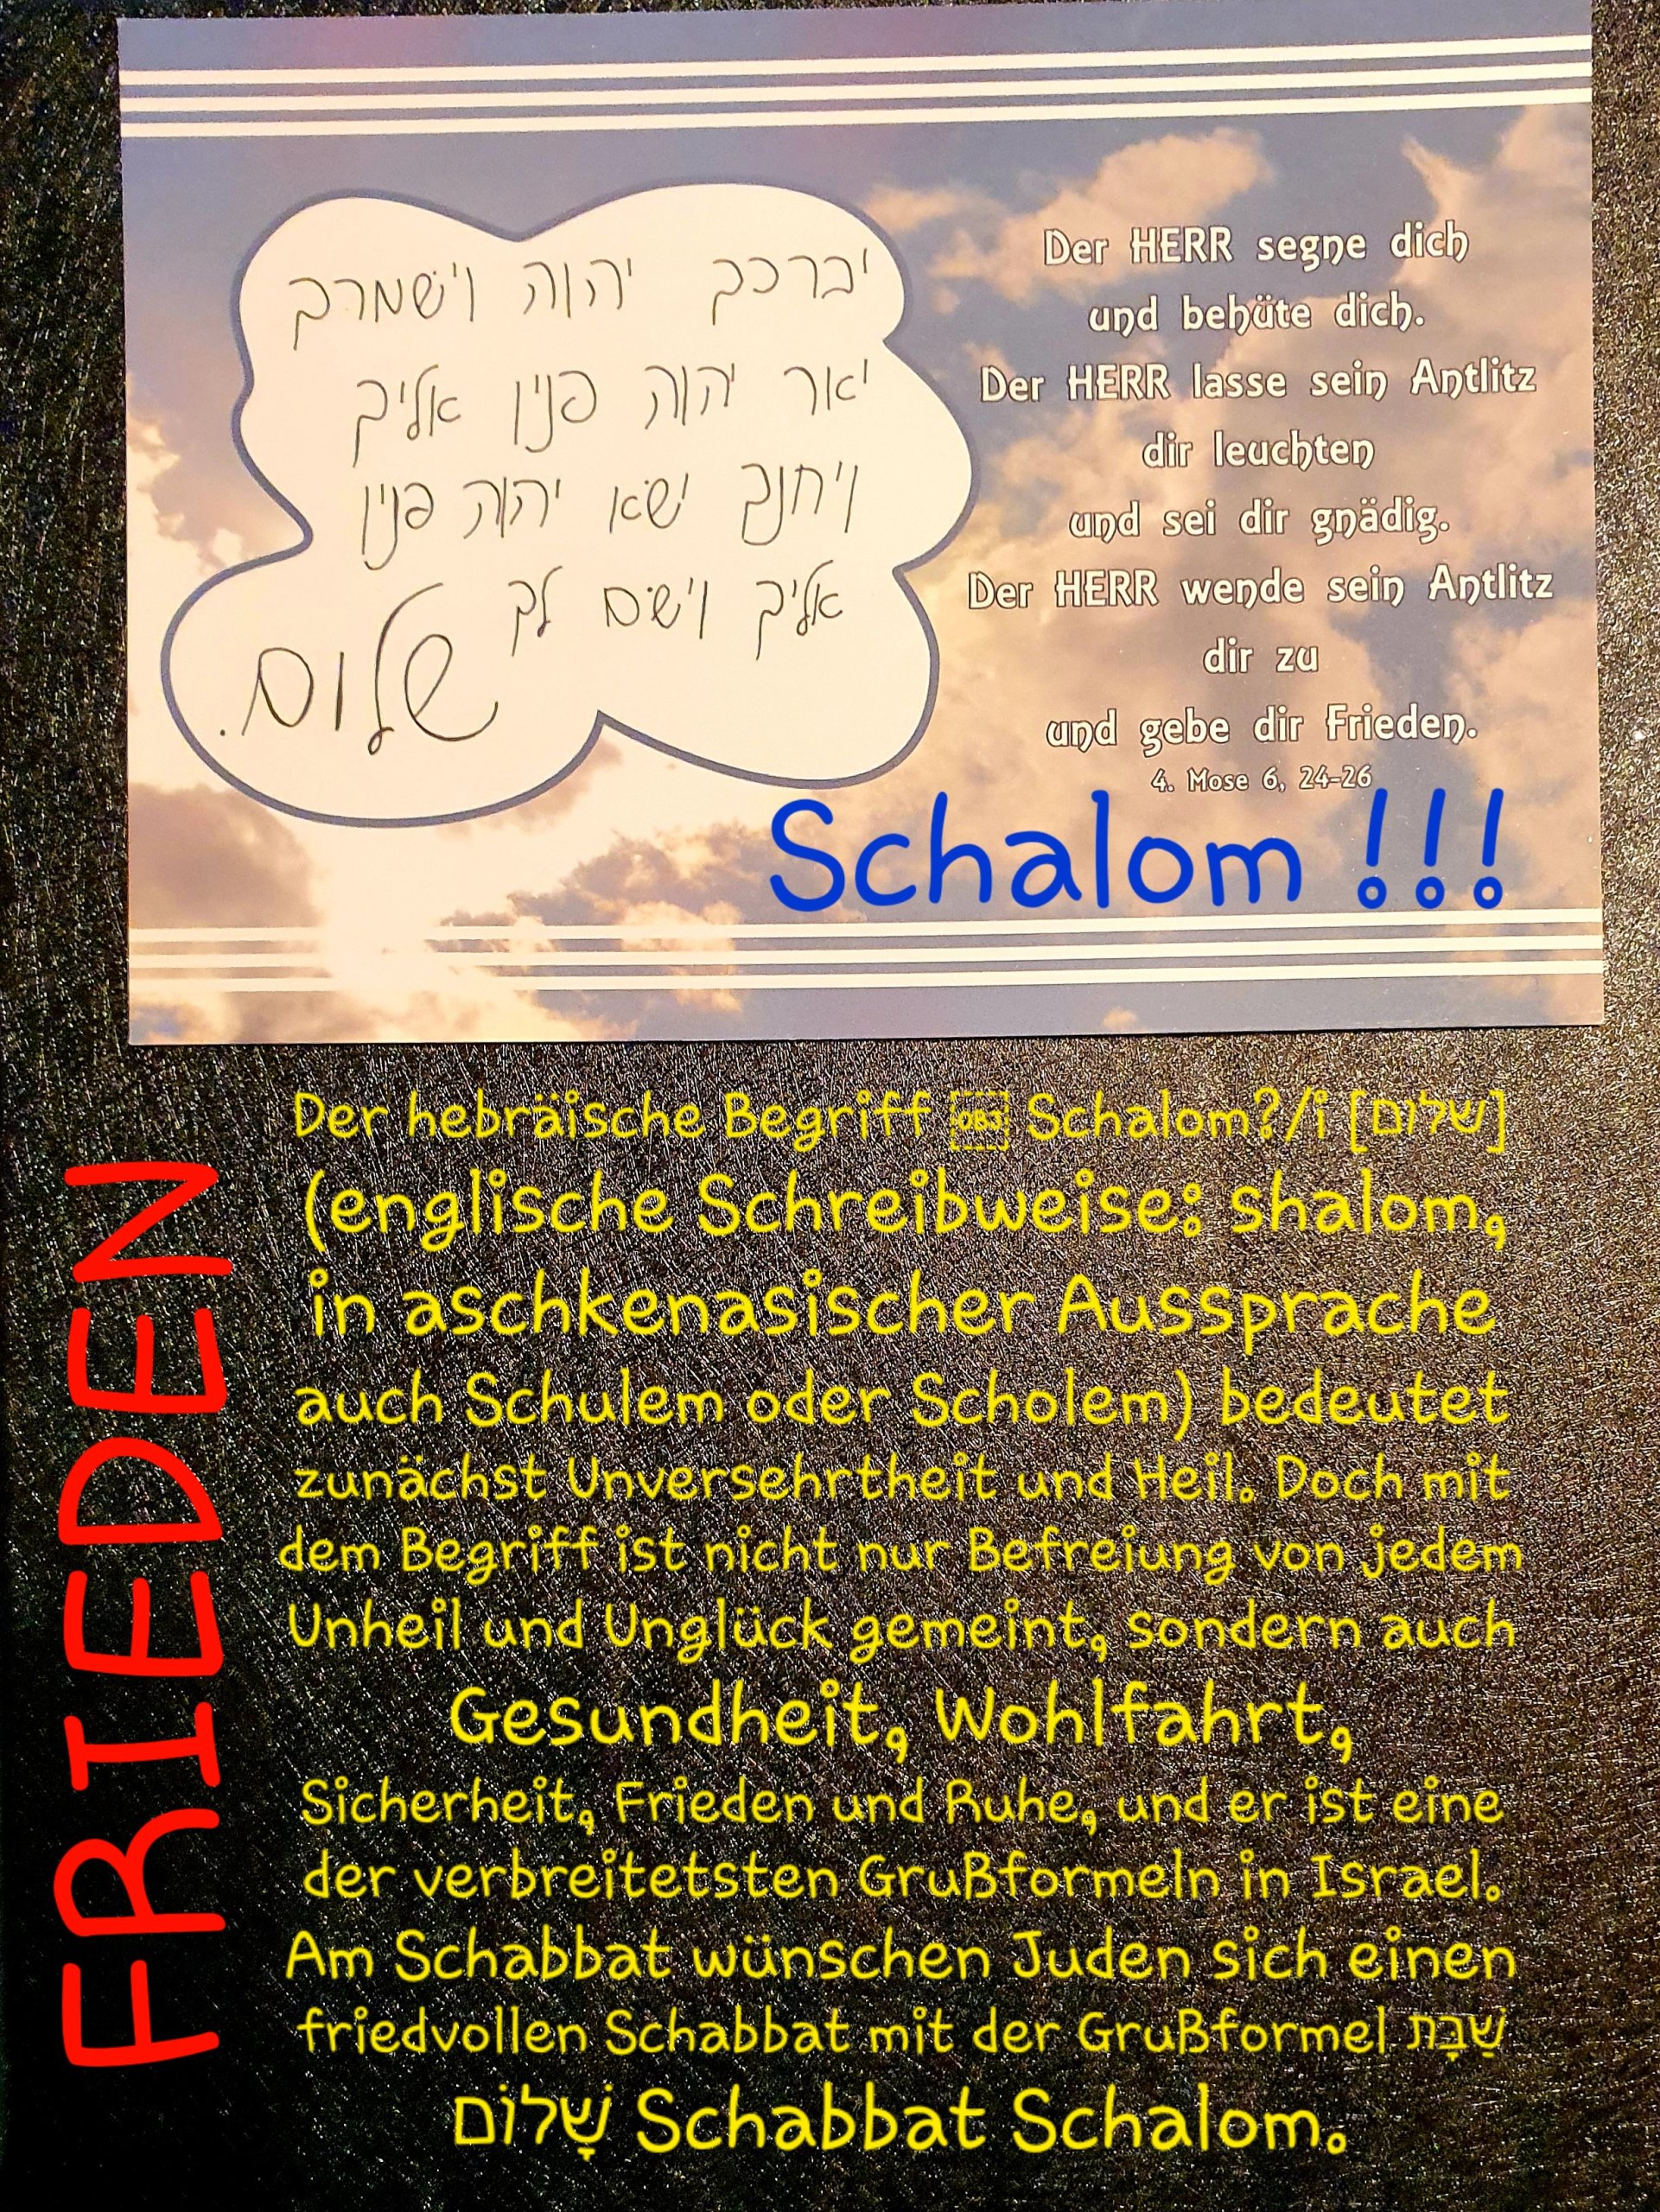 יברכך יהוה וישמרך
יאר יהוה פניו אליך
ויחנך ישא יהוה פניו
אליך וישם לך
שלום.
Der HERR segne dich
und behüte dich.
Der HERR lasse sein Antlitz
dir leuchten
und sei dir gnädig.
Der HERR wende sein Antlitz
dir zu
und gebe dir Frieden.
4. Mose 6, 24-26
Schalom !!!
FRIEDEN
Der hebräische Begriff OBJ Schalom?/i [שלום]
(englische Schreibweise: shalom,
in aschkenasischer Aussprache
auch Schulem oder Scholem) bedeutet
zunächst Unversehrtheit und Heil. Doch mit
dem Begriff ist nicht nur Befreiung von jedem
Unheil und Unglück gemeint, sondern auch
Gesundheit, Wohlfahrt,
Sicherheit, Frieden und Ruhe, und er ist eine
der verbreitetsten Grußformeln in Israel.
Am Schabbat wünschen Juden sich einen
friedvollen Schabbat mit der Grußformel שַׁבָּת
שָׁלוֹם Schabbat Schalom.